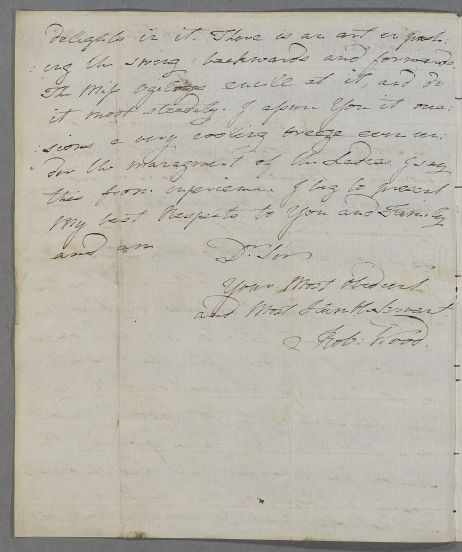 delights in it. There is an art in push:
:ing the swing backwards and forwards,
The Miss Ogilvies excell at it, and do
it most steadily. I assure You it occa:
:sions a very cooling breeze even un:
:der the managment of the Ladies. I say
this from experience. I beg to present
My best Respects to You and Family
and am
Dr. Sir
Your Most Obedient
and Most Humble Servant
Rob: Wood.